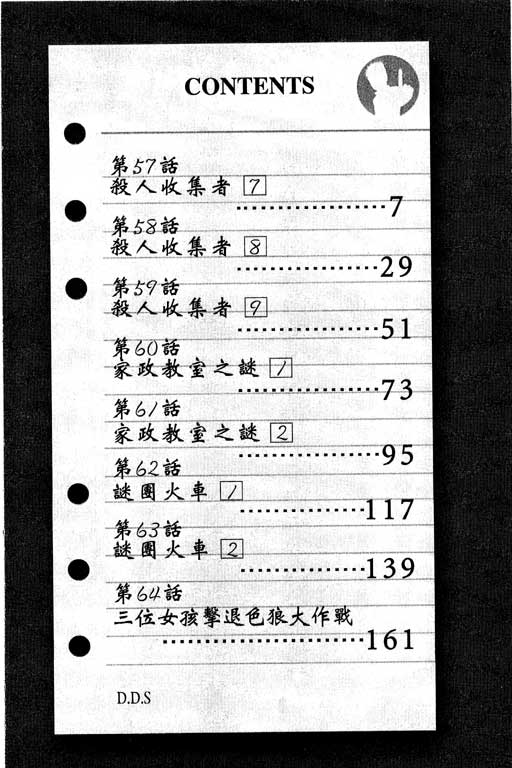 CONTENTS
第57話
殺人收集者 7
7
第58話
殺人收集者 8
29
第59話
殺人收集者 9
51
第60話
家政教室之謎 1
73
第61話
家政教室之謎 2
95
第62話
謎團火車 1
117
第63話
謎團火車 2
139
第64話
三位女孩擊退色狼大作戰
161
D.D.S